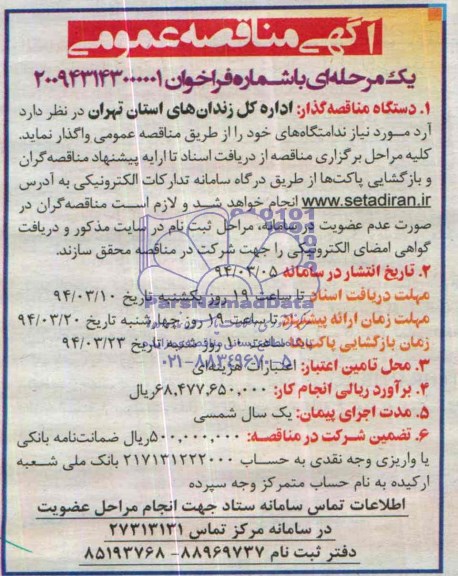 آگهی مناقصه عمومی
یک مرحله‌ای با شماره فراخوان ۲۰۰۹۴۳۱۴۳۰۰۰۰۰۱
۱. دستگاه مناقصه‌گذار: اداره کل زندان‌های استان تهران در نظر دارد
آرد مورد نیاز ندامتگاه‌های خود را از طریق مناقصه عمومی واگذار نماید.
کلیه مراحل برگزاری مناقصه از دریافت اسناد تا ارایه پیشنهاد مناقصه‌گران
و بازگشایی پاکت‌ها از طریق درگاه سامانه تدارکات الکترونیکی به آدرس
www.setadiran.ir انجام خواهد شد و لازم است مناقصه‌گران در
صورت عدم عضویت در سامانه، مراحل ثبت نام در سایت مذکور و دریافت
گواهی امضای الکترونیکی را جهت شرکت در مناقصه محقق سازند.
۲. تاریخ انتشار در سامانه ۹۴/۰۳/۰۵
مهلت دریافت اسناد تا ساعت ۱۹ روز یکشنبه تاریخ ۹۴/۰۳/۱۰
مهلت زمان ارائه پیشنهاد تا ساعت ۱۹ روز چهارشنبه تاریخ ۹۴/۰۳/۲۰
زمان بازگشایی پاکت‌ها ساعت ۱۰ روز شنبه تاریخ ۹۴/۰۳/۲۳
۳. محل تامین اعتبار: اعتبارات هزینه‌ای
۴. برآورد ریالی انجام کار: ۶۸,۴۷۷,۶۵۰,۰۰۰ریال
۵. مدت اجرای پیمان: یک سال شمسی
۶. تضمین شرکت در مناقصه: ۵۰۰,۰۰۰,۰۰۰ریال ضمانت‌نامه بانکی
یا واریزی وجه نقدی به حساب ۲۱۷۱۳۱۲۲۲۰۰۰ بانک ملی شعبه
ارکیده به نام حساب متمرکز وجه سپرده
اطلاعات تماس سامانه ستاد جهت انجام مراحل عضویت
در سامانه مرکز تماس ۲۷۳۱۳۱۳۱
دفتر ثبت نام ۸۸۹۶۹۷۳۷- ۸۵۱۹۳۷۶۸
ParsNamadData
۰۲۱-۸۸۳۴۹۶۷۰-۵